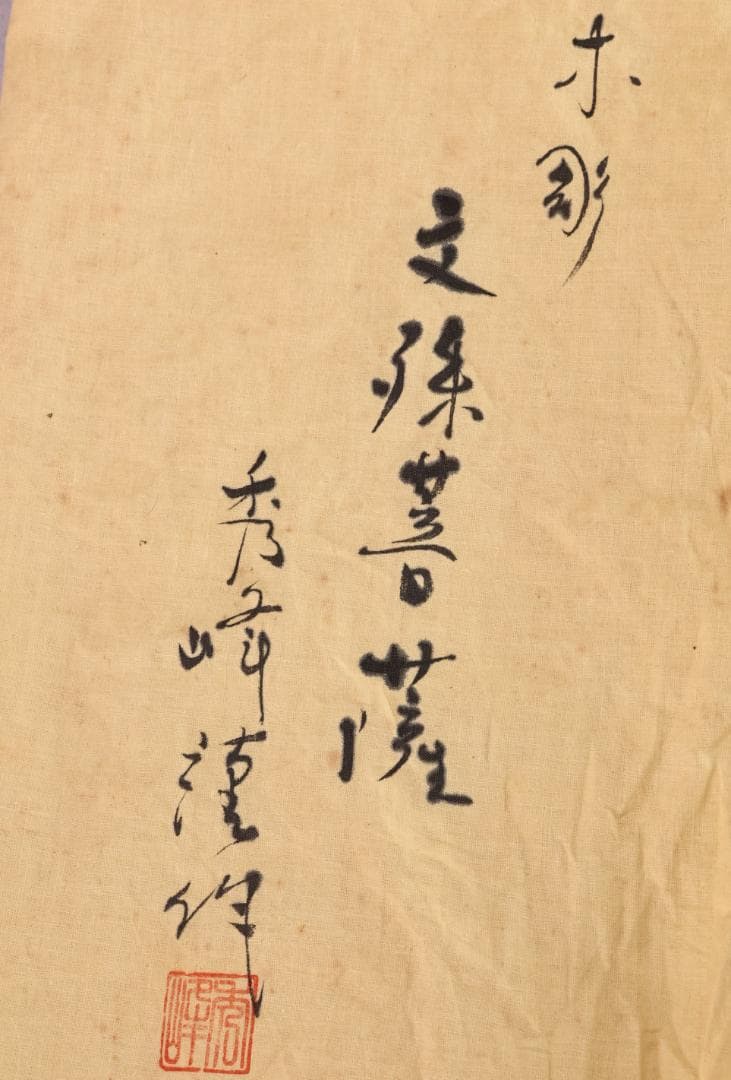 木彫
文殊菩薩
秀峰謹作
秀峰